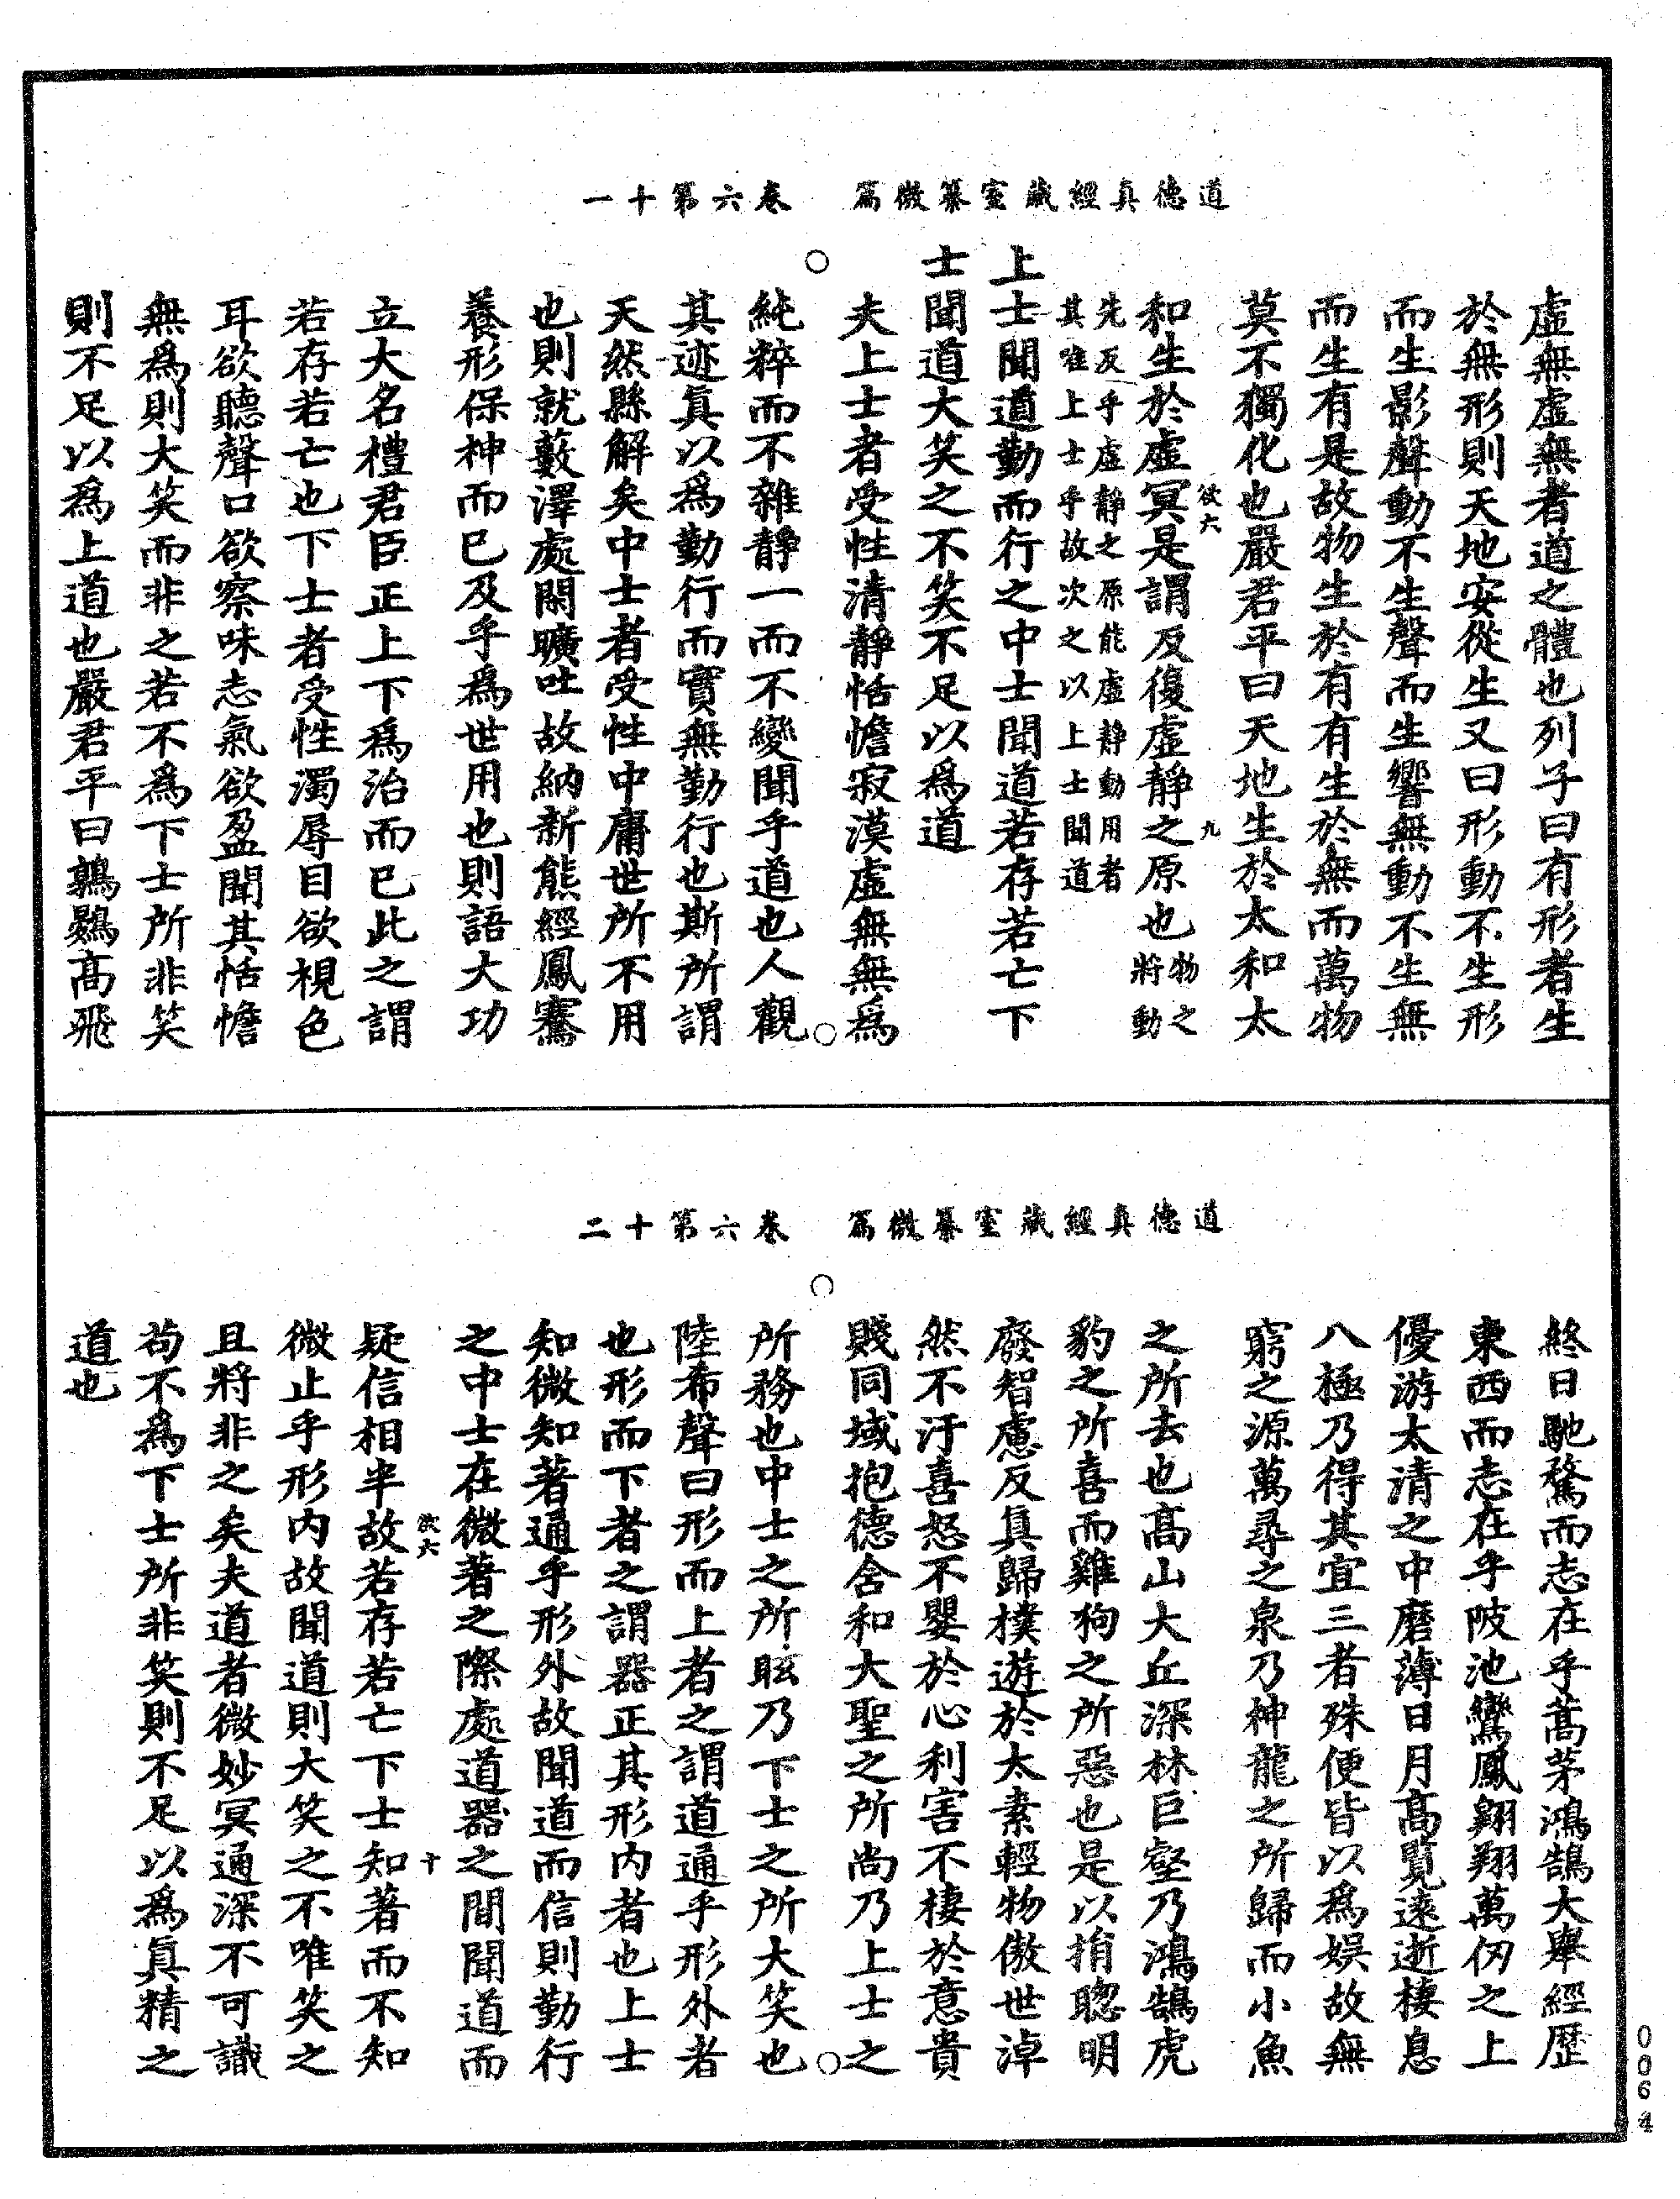 道德真經藏室纂微篇　卷六第十一
虛無虛無者道之體也列子曰有形者生
於無形則天地安從生又曰形動不生形
而生影聲動不生聲而生響無動不生無
而生有是故物生於有有生於無而萬物
莫不獨化也嚴君平曰天地生於太和太
欲六　九
和生於虛冥是謂反復虛靜之原也物之將動
先反乎虛靜之原能虛靜動用者
其唯上士乎故次之以上士聞道
上士聞道勤而行之中士聞道若存若亡下
士聞道大笑之不笑不足以為道
夫上士者受性清靜恬憺寂漠虛無無為
純粹而不雜靜一而不變聞乎道也人觀
其迹真以為勤行而實無勤行也斯所謂
天然縣解矣中士者受性中庸世所不用
也則就藪澤處閑曠吐故納新熊經鳳騫
養形保神而已及乎為世用也則語大功
立大名禮君臣正上下為治而已此之謂
若存若亡也下士者受性濁辱目欲視色
耳欲聽聲口欲察味志氣欲盈聞其恬憺
無為則大笑而非之若不為下士所非笑
則不足以為上道也嚴君平曰鶉鷃高飛
道德真經藏室纂微篇　卷六第十二
終日馳騖而志在乎蒿茅鴻鵠大舉經歷
東西而志在乎陂池鸞鳳翱翔萬仞之上
優游太清之中磨薄日月高覽遠逝棲息
八極乃得其宜三者殊便皆以為娛故無
窮之源萬尋之泉乃神龍之所歸而小魚
之所去也高山大丘深林巨壑乃鴻鵠虎
豹之所喜而雞狗之所惡也是以捐聰明
廢智慮反真歸樸遊於太素輕物傲世淖
然不汙喜怒不嬰於心利害不棲於意貴
賤同域抱德含和大聖之所尚乃上士之
所務也中士之所眩乃下士之所大笑也
陸希聲曰形而上者之謂道通乎形外者
也形而下者之謂器正其形內者也上士
知微知著通乎形外故聞道而信則勤行
之中士在微著之際處道器之間聞道而
欲六　十
疑信相半故若存若亡下士知著而不知
微止乎形內故聞道則大笑之不唯笑之
且將非之矣夫道者微妙冥通深不可識
苟不為下士所非笑則不足以為真精之
道也
0064